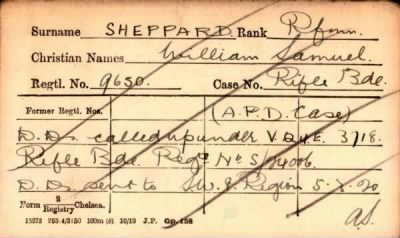 Surname SHEPPARD. Rank Rfmn.
Christian Names William Samuel.
Regtl. No. 9650. Case No. Rifle Bde.
Former Regtl. Nos. (A.P.D. Case)
D.Ds. called up under V.D.4.E. 3/18.
Rifle Bde. Reg. No S/74006.
D.Ds. sent to S.W.E. Region 5.X.20
Form 2 Registry Chelsea.
A.S.
15272 253.4/3150 100m (8) 10/19 J.P. Gp. 158